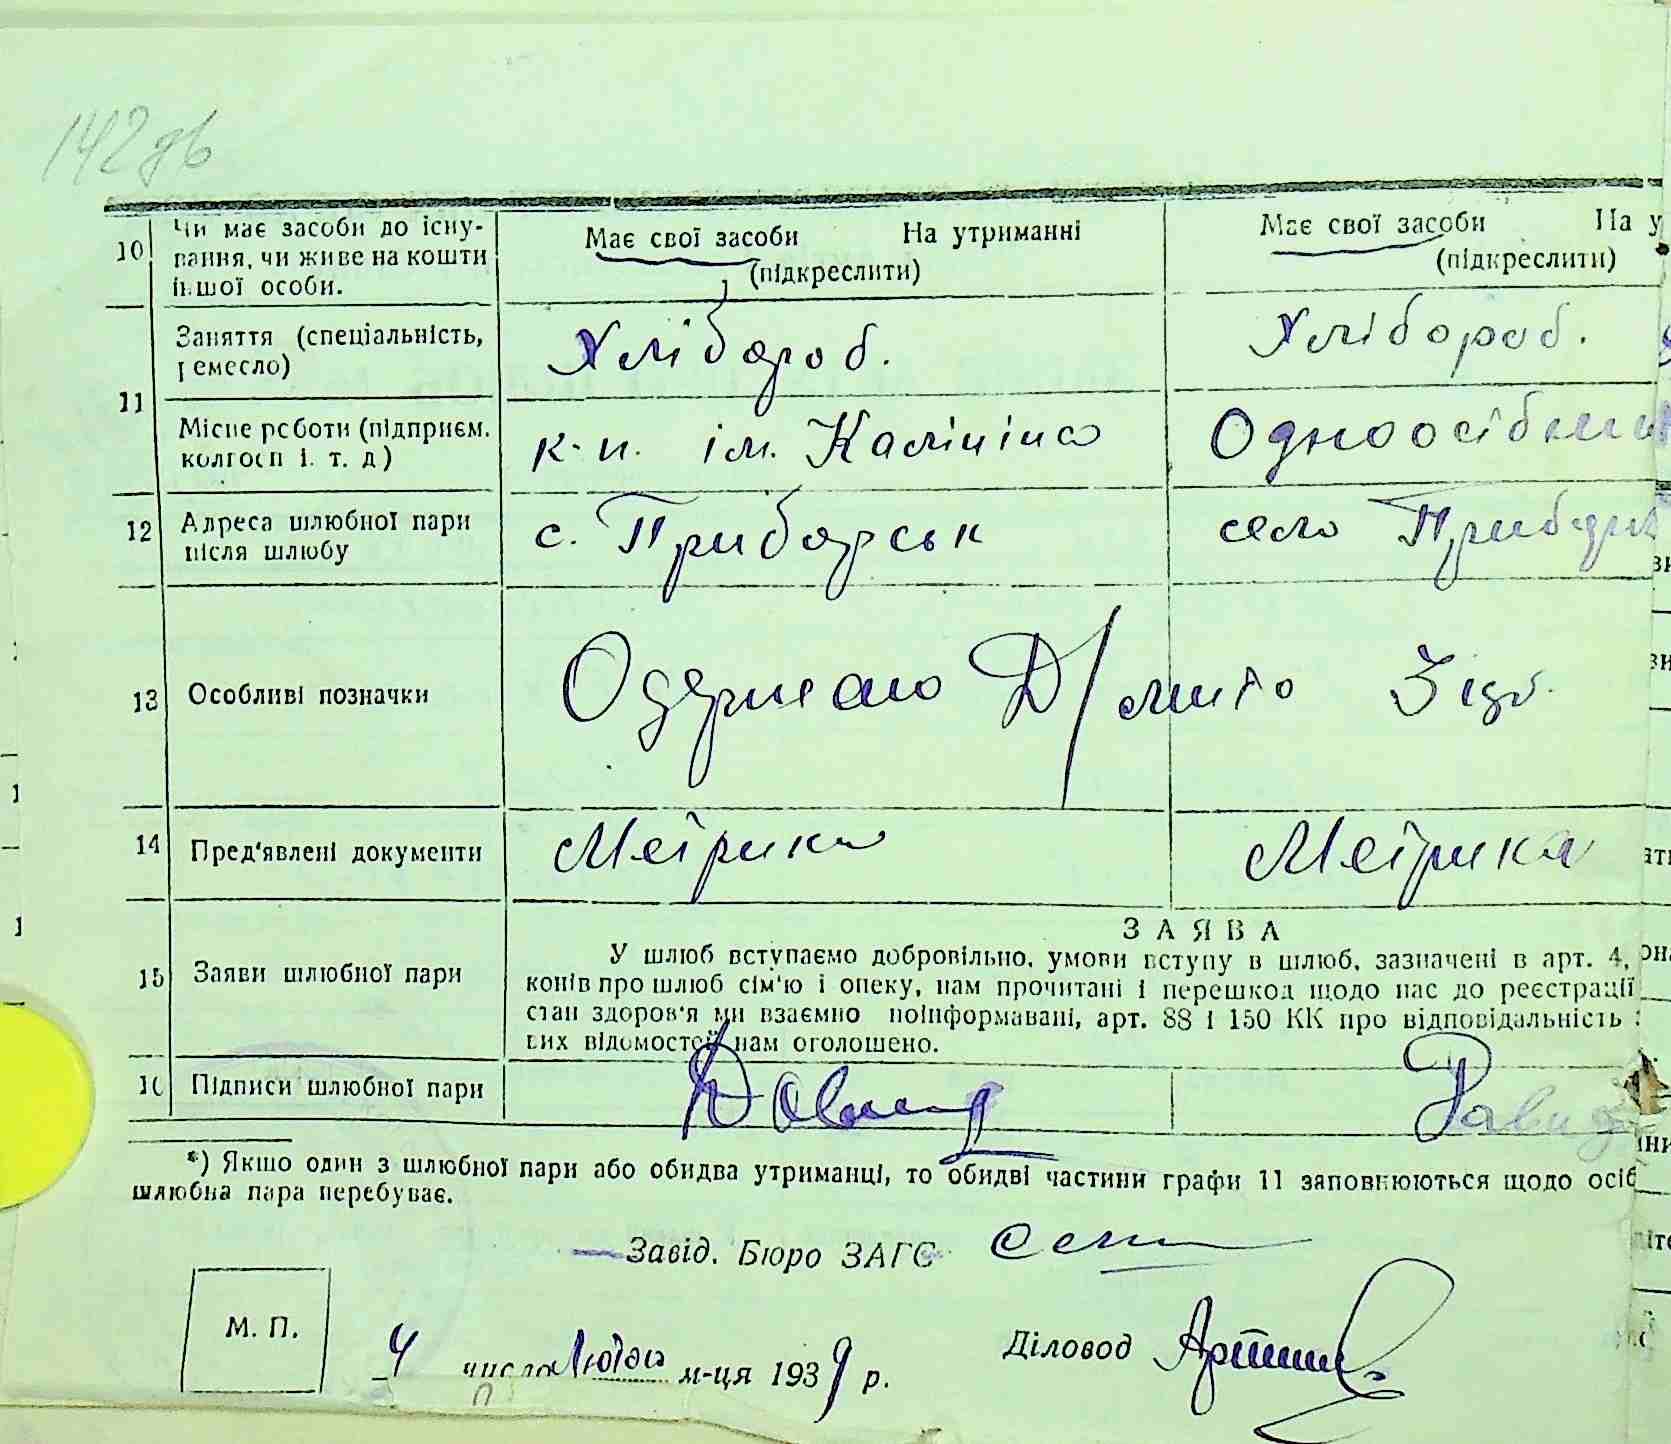 142 зв
10 Чи має засоби до існу-
вання, чи живе на кошти
іншої особи.
Має свої засоби На утриманні
(підкреслити)
Має свої засоби На у
(підкреслити)
11 Заняття (спеціальність,
ремесло)
Хлібороб.
Хлібороб.
Місце роботи (підприєм.
колгосп і. т. д)
к-п. ім. Калініна
Одноосібник
12 Адреса шлюбної пари
після шлюбу
с. Приборськ
село Прибор
13 Особливі позначки
Одержано Д/мито 3
14 Пред'явлені документи
Метрика
Метрика
15 Заяви шлюбної пари
ЗАЯВА
У шлюб вступаємо добровільно, умови вступу в шлюб, зазначені в арт. 4,
конів про шлюб сім'ю і опеку, нам прочитані і перешкод щодо нас до реєстрації
стан здоров'я ми взаємно поінформавані, арт. 88 і 150 КК про відповідальність
вих відомостей нам оголошено.
16 Підписи шлюбної пари
*) Якшо один з шлюбної пари або обидва утриманці, то обидві частини графи 11 заповнюються щодо осіб
шлюбна пара перебуває.
Завід. Бюро ЗАГС
М. П.
4 числа Лютого м-ця 1939 р.
Діловод